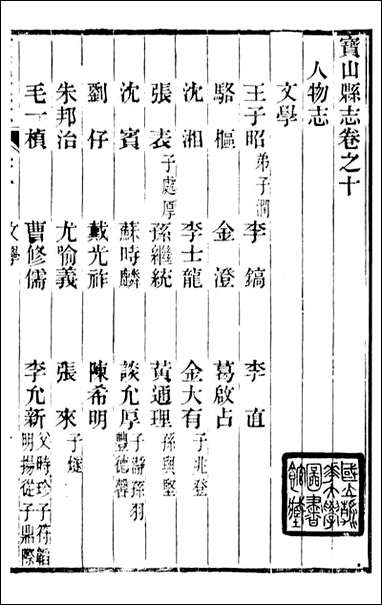 寶山縣志卷之十
人物志
文學
王子昭弟子澗 李鎬 李直
駱樞 金澄 葛啟占
沈湘 李士龍 金大有子兆登
張表子處厚 孫繼統 黃通理孫與堅
沈賓 蘇時麟 談允厚子 孫羽豐德馨
劉仔 戴光祚 陳希明
朱邦治 尤喻義 張來子燧
毛一楨 曹修儒 李允新父時珍子 明揚從子鼎際
文學
國立 大學圖書館藏